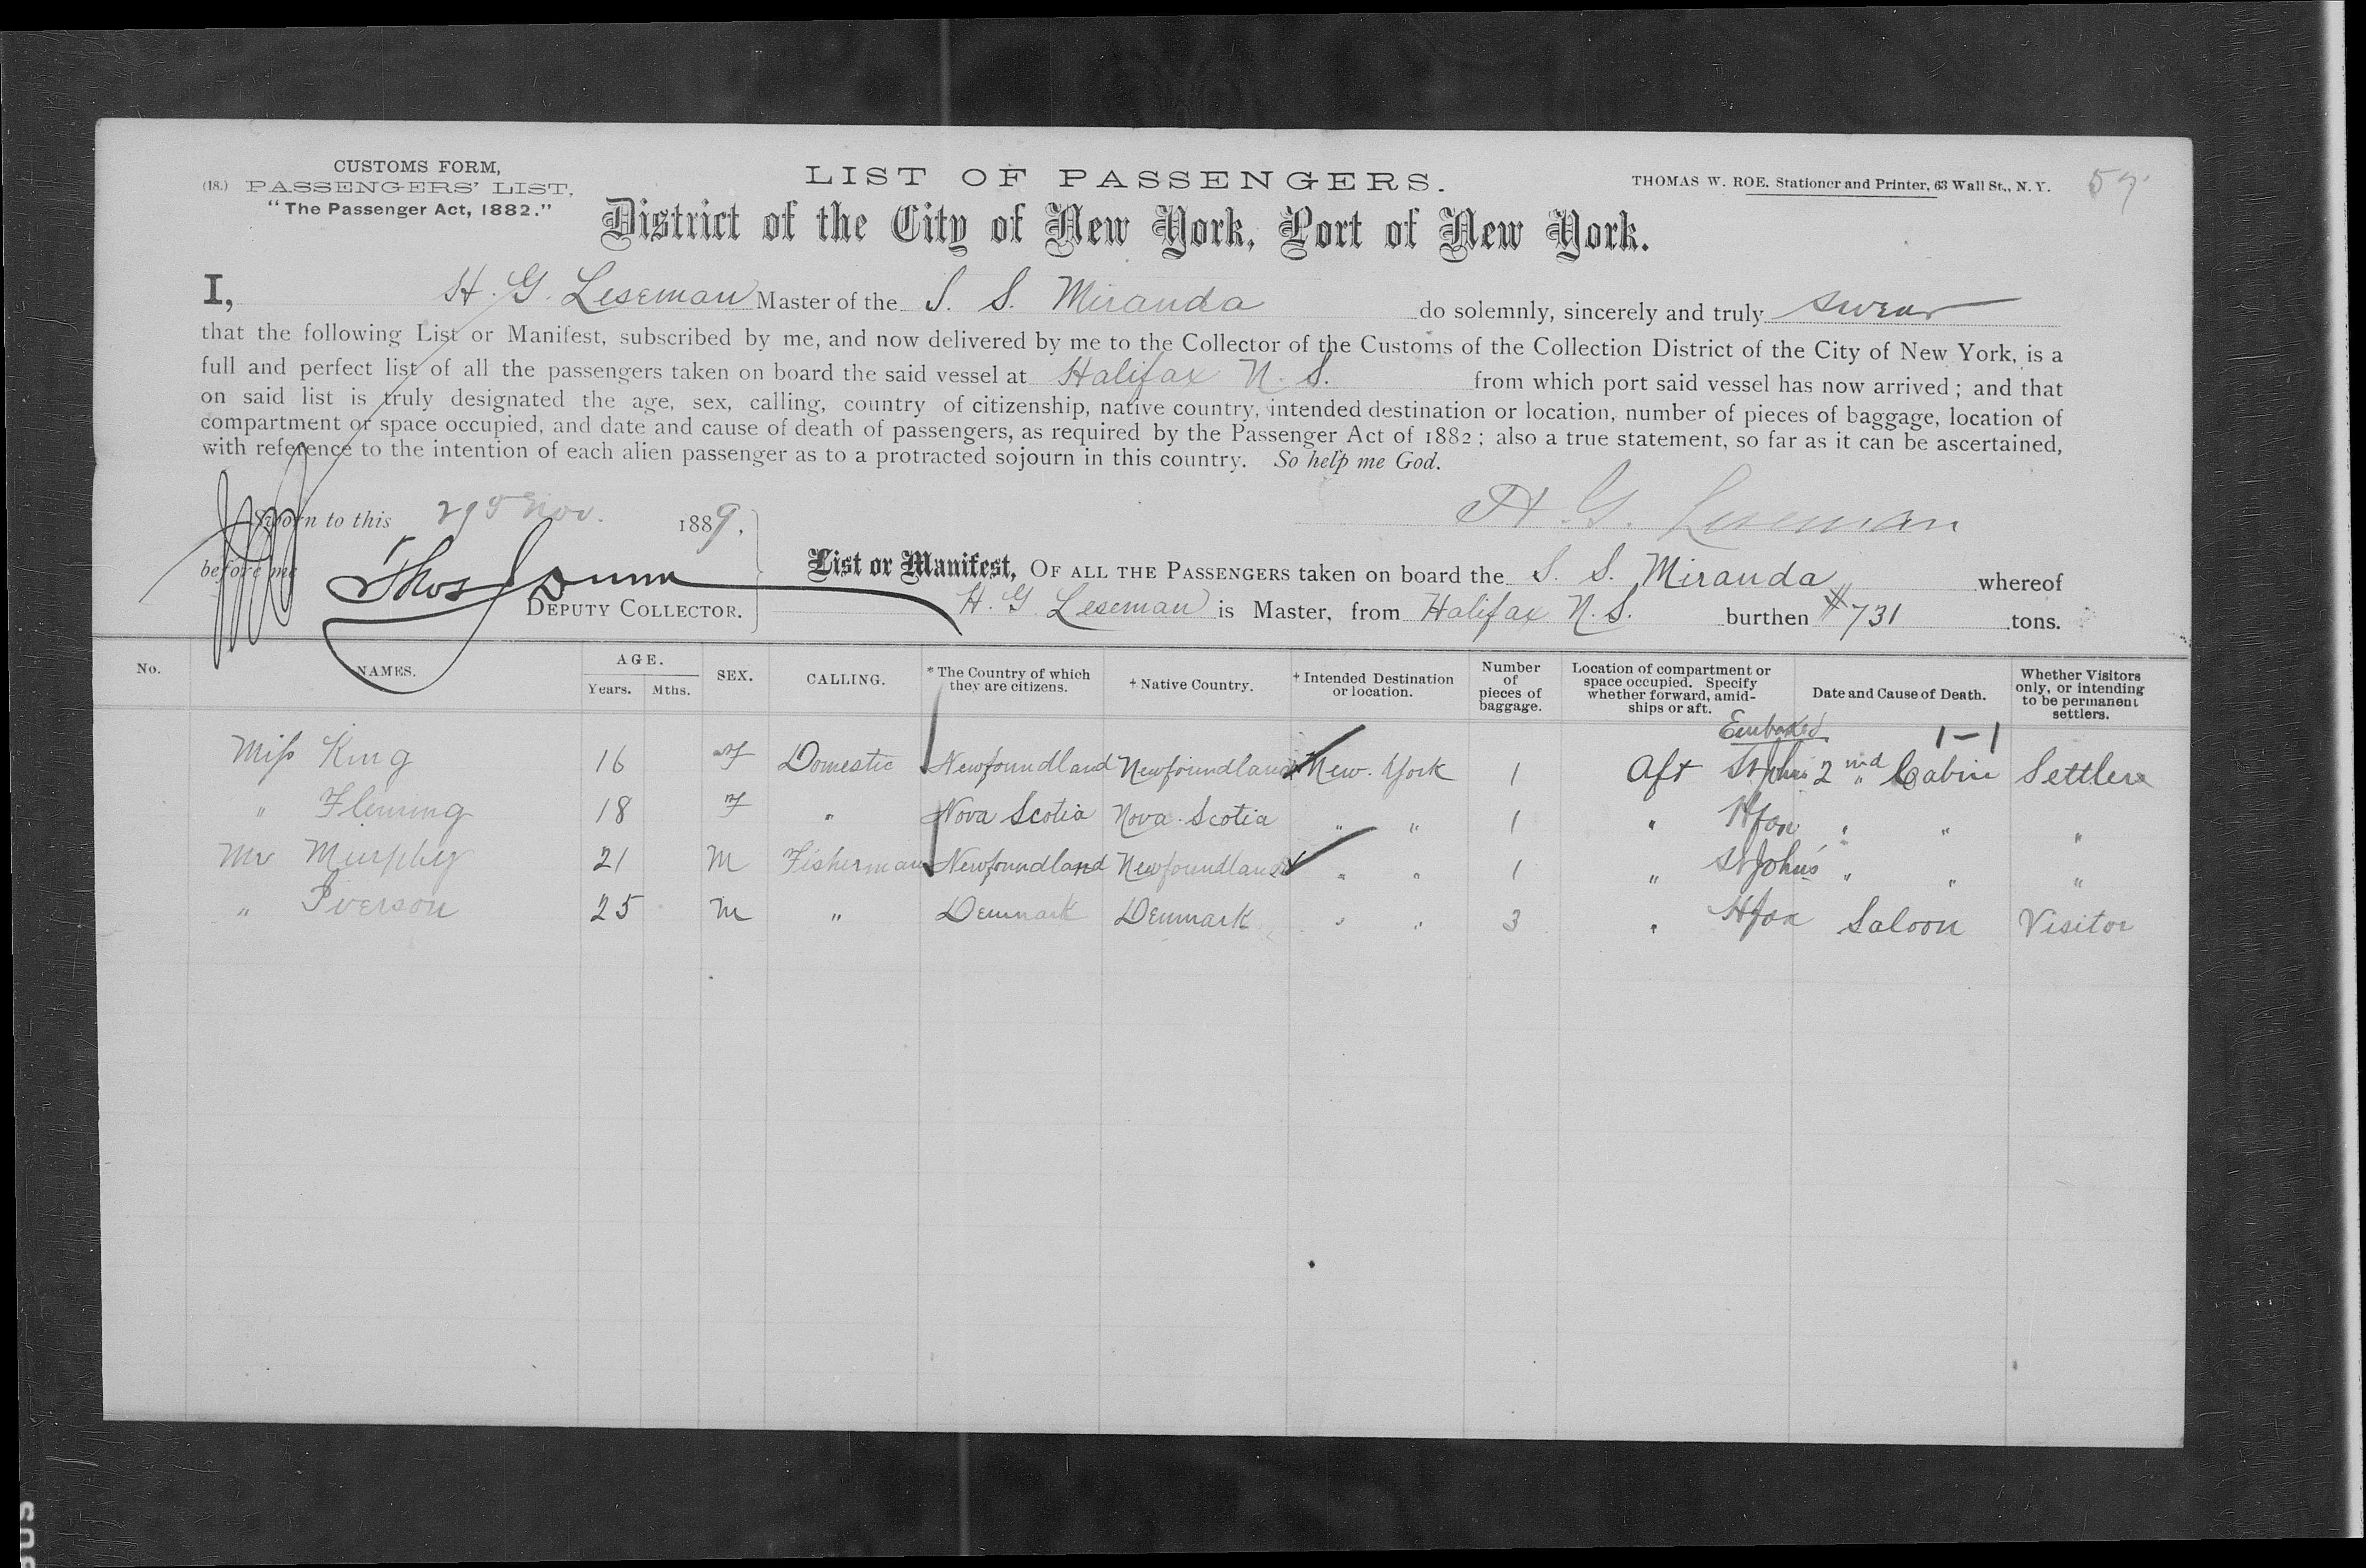 CUSTOMS FORM,
(18.) PASSENGERS' LIST,
"The Passenger Act, 1882."
LIST OF PASSENGERS.
THOMAS W. ROE, Stationer and Printer, 63 Wall St., N.Y.
District of the City of New York, Port of New York.
I, H. G. Leseman Master of the S. S. Miranda do solemnly, sincerely and truly swear
that the following List or Manifest, subscribed by me, and now delivered by me to the Collector of the Customs of the Collection District of the City of New York, is a
full and perfect list of all the passengers taken on board the said vessel at Halifax N. S. from which port said vessel has now arrived; and that
on said list is truly designated the age, sex, calling, country of citizenship, native country, intended destination or location, number of pieces of baggage, location of
compartment or space occupied, and date and cause of death of passengers, as required by the Passenger Act of 1882; also a true statement, so far as it can be ascertained,
with reference to the intention of each alien passenger as to a protracted sojourn in this country. So help me God.
H G. Leseman
Sworn to this Nov. 1889.
before me Thos J Dunn
DEPUTY COLLECTOR.
List or Manifest, OF ALL THE PASSENGERS taken on board the S. S. Miranda whereof
H. G Leseman is Master, from Halifax N. S. burthen # 731 tons.
No. NAMES. AGE. Years. Mths. SEX. CALLING. * The Country of which they are citizens. † Native Country. † Intended Destination or location. Number of pieces of baggage. Location of compartment or space occupied. Specify whether forward, amidships or aft. Date and Cause of Death. Whether Visitors only, or intending to be permanent settlers.
Embarked 1-1
Miss King 16 F Domestic Newfoundland Newfoundland New York 1 Aft St Johns 2nd Cabin Settler
" Fleming 18 F " Nova Scotia Nova Scotia " " 1 " Hfax " " "
Mr Murphy 21 M Fisherman Newfoundland Newfoundland " " 1 " St John's " " "
" Iverson 25 M " Denmark Denmark " " 3 " Hfax Saloon Visitor